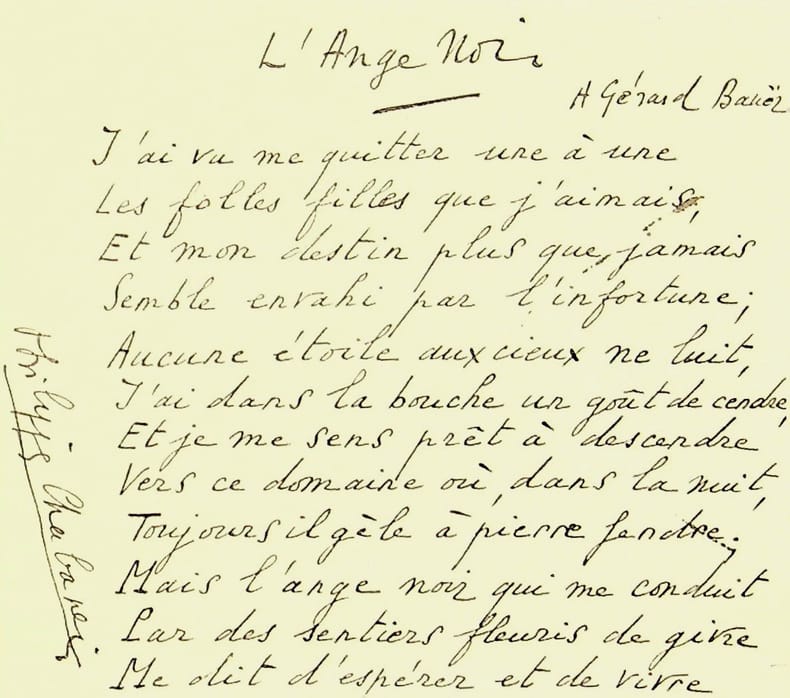 L'Ange Noir
A Gérard Bauër
J'ai vu me quitter une à une
Les folles filles que j'aimais,
Et mon destin plus que jamais
Semble envahi par l'infortune;
Aucune étoile aux cieux ne luit,
J'ai dans la bouche un goût de cendre,
Et je me sens prêt à descendre
Vers ce domaine où, dans la nuit,
Toujours il gèle à pierre fendre;
Mais l'ange noir qui me conduit
Par des sentiers fleuris de givre
Me dit d'espérer et de vivre
Philippe Chabaneix